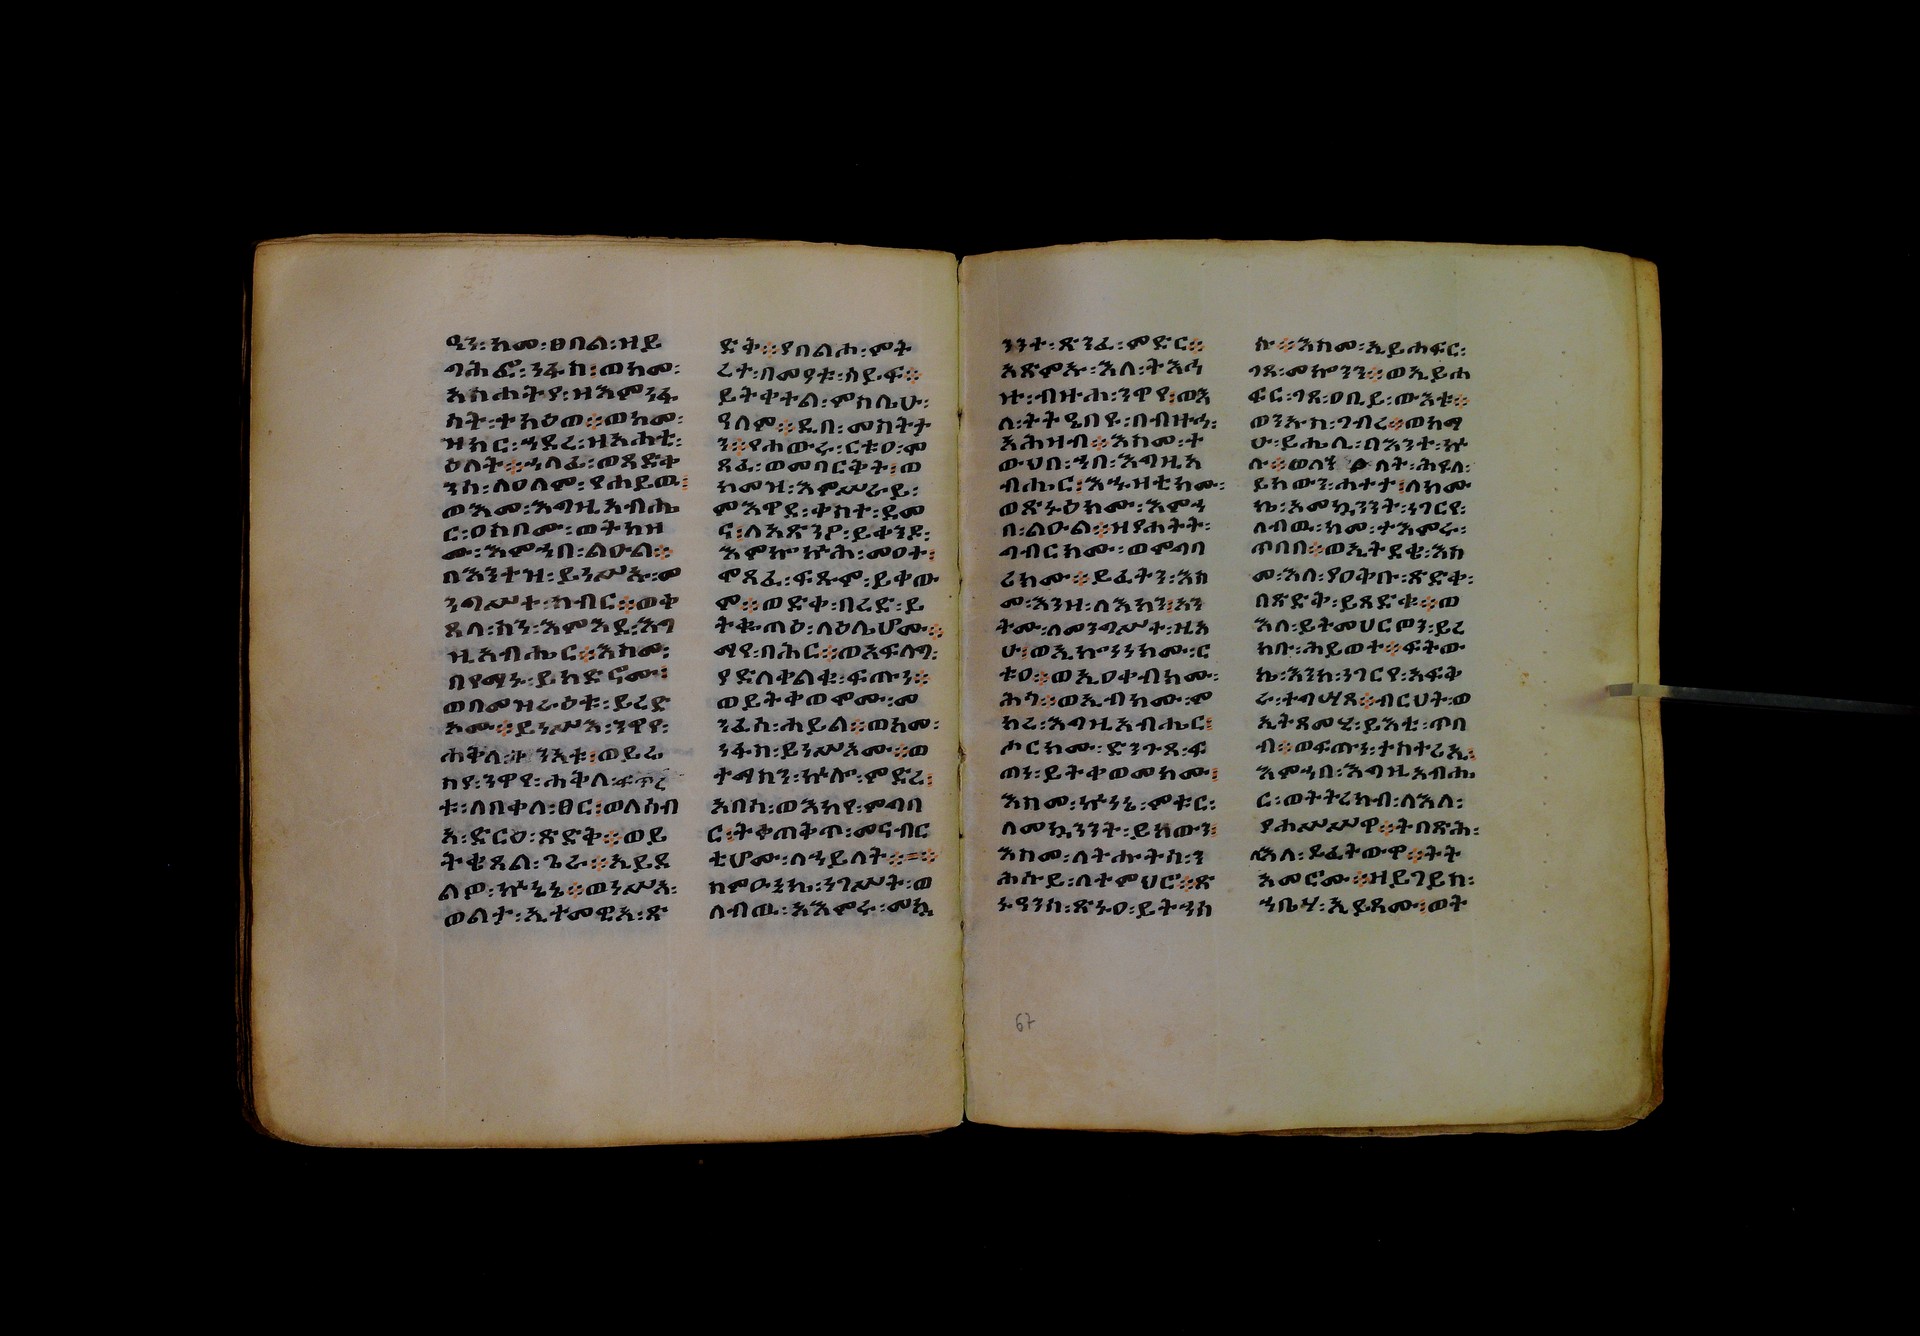 ዓን፡ከመ፡ፀበል፡ዘይ
ግሕፎ፡ንፋስ፡ወከመ፡
አስሐትያ፡ዘእምንፋ
ስት፡ተክዕወ፡፡ወከመ፡
ዝክር፡ኀደረ፡ዘአሐቲ፡
ዕለት፡፡ኀለፈ፡ወጻድቃ
ንሰ፡ለዓለም፡የሐይዉ፡
ወእሙ፡እግዚአብሔ
ር፡ዐስቦሙ፡ወትክዞ
ሙ፡እምኀበ፡ልዑል፡፡
በእንተዝ፡ይነሥኡ፡መ
ንግሥተ፡ክብር፡፡ወቅ
ጸላ፡ሰን፡እምእደ፡እግ
ዚአብሔር፡፡እስመ፡
በየማኑ፡ይከድኖሙ፡
ወበመዝራዕቱ፡ይረድ
ኦሙ፡፡ይነሥእ፡ንዋየ፡
ሐቅለ፡ቅንአቱ፡ወይሬ
ስየ፡ንዋየ፡ሐቅለ፡ፍጥረ
ቱ፡ለበቀለ፡ፀር፡ወለብሰ
አ፡ድርዐ፡ጽድቅ፡፡ወይ
ትቄጸል፡ጌራ፡፡ኢይደ
ልዎ፡ኵነኔ፡፡ወነሥአ፡
ወልታ፡ኢተመዊአ፡ጽ
ድቅ፡፡ያበልሕ፡ምት
ረተ፡በመዓቱ፡ሰይፍ፡፡
ይትቀተል፡ምስሌሁ፡
ዓለም፡፡ዲበ፡መስተት
ን፡፡የሐውራ፡ርቱዐ፡ሞ
ጻፈ፡ወመባርቅት፡ወ
ከመዝ፡እምሥራይ፡
ምእዋደ፡ቀስተ፡ደመ
ና፡ለእጽንፆ፡ይቀንጾ፡
እምኰኵሕ፡መዐተ፡
ሞጻፈ፡ፍጹም፡ይቀው
ም፡፡ወጽቀ፡በረድ፡ይ
ትቈጣዕ፡ላዕሌሆሙ፡፡
ማየ፡ባሕር፡፡ወአፍላግ፡
ያድለቀልቁ፡ፍጡነ፡፡
ወይትቀወሞሙ፡መ
ንፈሰ፡ሐይል፡፡ወከመ፡
ነፋስ፡ይነሥኦሙ፡፡ወ
ተማስን፡ኵሎ፡ምድረ፡
አበሳ፡ወእከየ፡ምግባ
ር፡ትቀጠቅጥ፡መናብር
ቲሆሙ፡ለኀይላት፡፡=፡፡
ስምዑኒኬ፡ነገሥት፡ወ
ለብዉ፡አእምሩ፡መኳ
ንንተ፡ጽንፈ፡ምድር፡፡
አጽምኡ፡እለ፡ትእኅ
ዙ፡ብዙሐ፡ንዋየ፡ወእ
ለ፡ትትዔበዩ፡በብዙኃ፡
አሕዛብ፡፡እስመ፡ተ
ውህበ፡ኀበ፡እግዚአ
ብሔር፡እኁዘቲክሙ፡
ወጽኑዕክሙ፡እምኀ
በ፡ልዑል፡፡ዘየሐትት፡
ግብርክሙ፡ወምግባ
ሪክሙ፡፡ይፈትን፡እስ
መ፡እንዘ፡ላእካን፡አን
ትሙ፡ለመንግሥተ፡ዚአ
ሁ፡ወኢኰነንክሙ፡ር
ቱዐ፡፡ወኢዐቀብክሙ፡
ሕገ፡፡ወኢብክሙ፡ም
ክረ፡እግዚአብሔር፡
ሖርክሙ፡ድንጉጸ፡ፍ
ጡነ፡ይትቀወመክሙ፡
እስመ፡ኵነኔ፡ምቱር፡
ለመኳንንት፡ይከውን፡
እስመ፡ለትሑትሰ፡ን
ሕሱይ፡ለተምህሮ፡፡ጽ
ኑዓንሰ፡ጽኑዐ፡ይትኀሠ
ሡ፡፡እስመ፡ኢይሐፍር፡
ገጸ፡መኰንን፡፡ወኢይሐ
ፍር፡ገጸ፡ዐቢይ፡ውእቱ፡፡
ወንኡስ፡ገብረ፡፡ወከማ
ሁ፡ይሔሊ፡በእንተ፡ኵ
ሉ፡፡ወለጽኑዓት፡ሕያል፡
ይከውን፡ሐተታ፡ለክሙ
ኬ፡እመኳንንት፡ነገርየ፡
ለብዉ፡ከመ፡ተአምሩ፡
ጥበበ፡፡ወኢትደቁ፡እስ
መ፡እለ፡የዐቅቡ፡ጽድቀ፡
በጽድቅ፡ይጸድቁ፡፡ወ
እለ፡ይትመሀርዎን፡ይረ
ክቡ፡ሕይወተ፡፡ፍትው
ኬ፡እንከ፡ነገርየ፡አፍቅ
ሩ፡ተግሣጸ፡፡ብርህት፡ወ
ኢትጸመሂ፡ይእቲ፡ጥበ
ብ፡፡ወፍጡነ፡ተስተሬኢ፡
እምኀበ፡እግዚአብሔ
ር፡ወትትረከብ፡ለእለ፡
የሐሥሥዋ፡፡ትበጽሕ፡
ለእለ፡ይፈትውዋ፡፡ትት
አመሮሙ፡፡ዘይገይስ፡
ኀቤሃ፡ኢይጻሙ፡ወት
67